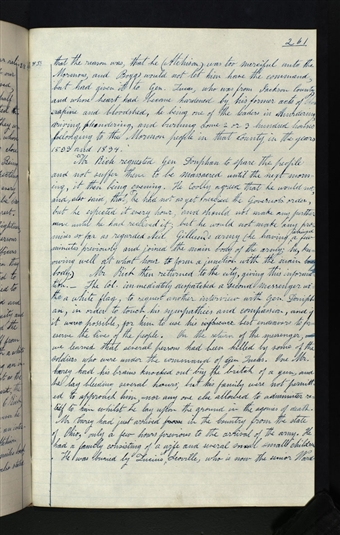 261
that the reason was, that he (Atchison) was too merciful unto the
Mormons, and Boggs would not let him have the command,
but had given it to Gen. Lucas, who was from Jackson County,
and whose heart had become hardened by his former acts of
rapine and bloodshed, he being one of the leaders in murdering,
driving, plundering, and burning some 2 or 3 hundred houses
belonging to the Mormon people in that county in the years
1833 and 1834.
Mr. Rich requested Gen. Doniphan to spare the people
and not suffer them to be massacred until the next morn-
ing, it then being evening. He coolly agreed that he would not,
and also said, that, he had not as yet received the Governor's order,
but he expected it every hour, and should not make any further
move until he had received it; but he would not make any pro-
mise so far as regarded Neil Gillium's army (he having a few
minutes previously and joined the main body of the army, he kno-
wing well at what hour to form a junction with the main
body). Mr. Rich then returned to the city, giving this informa-
tion. — The Col. immediately despatched a second messenger wi-
th a white flag, to request another interview with Gen. Doniph-
an, in order to touch his sympathies and compassion, and if
it were possible, for him to use his best endeavors to pre-
serve the lives of the people. On the return of this messenger,
we learned that several persons had been killed by some of the
soldiers who were under the command of Gen. Lucas. One Mr.
Carey had his brains knocked out by the britch of a gun, and
he lay bleeding several hours, but his family were not permitt-
ed to approach him, nor any one else allowed to administer re-
lief to him whilst he lay upon the ground in the agonies of death.
Mr. Carey had just arrived in the country from the state
of Ohio, only a few hours previous to the arrival of the army. He
had a family consisting of a wife and several small children.
He was buried by Lucius Scovill, who is now the senior Ward-